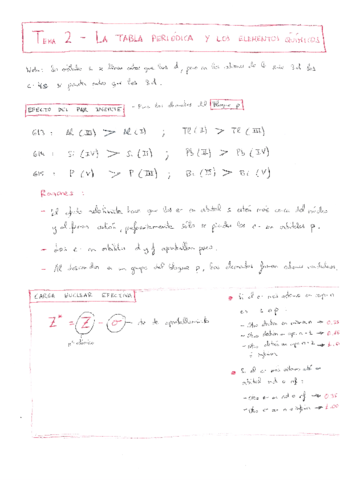 TEMA 2 - LA TABLA PERIÓDICA Y LOS ELEMENTOS QUÍMICOS
Nota: los orbitales s se llenan antes que los d, pero en los
4s se pierden antes que los 3d.
EFECTO DEL PAR INERTE - Para los elementos del bloque p
G13 : Al (III) >> Al (I) ; Tl (I) > Tl (III)
G14 : Si (IV) >> Si (II) ; Pb (II) > Pb (IV)
G15 : P (V) > P (III) ; Bi (III) > Bi (V)
Razones :
- El efecto relativista hace que los e- en orbital s estén más cerca del núcleo
y al formar catión, preferentemente sólo se pierden los e- en orbitales p.
- Los e- en orbitales d y f apantallan peor.
- Al descender en un grupo del bloque p, los elementos forman
CARGA NUCLEAR EFECTIVA
Z* = Z - σ → cte de apantallamiento
nº atómico
• Si el e- nos interesa en
es s o p.
- Otro electrón en mismo n → 0.35
- Otro electrón en cap. n-1 → 0.85
- Otro electrón en cap. n-2 → 1.00
o inferiores
• Si el e- nos interesa está en
orbital nd o nf :
- Otro e- en nd o nf → 0.35
- Otro e- en → 1.00